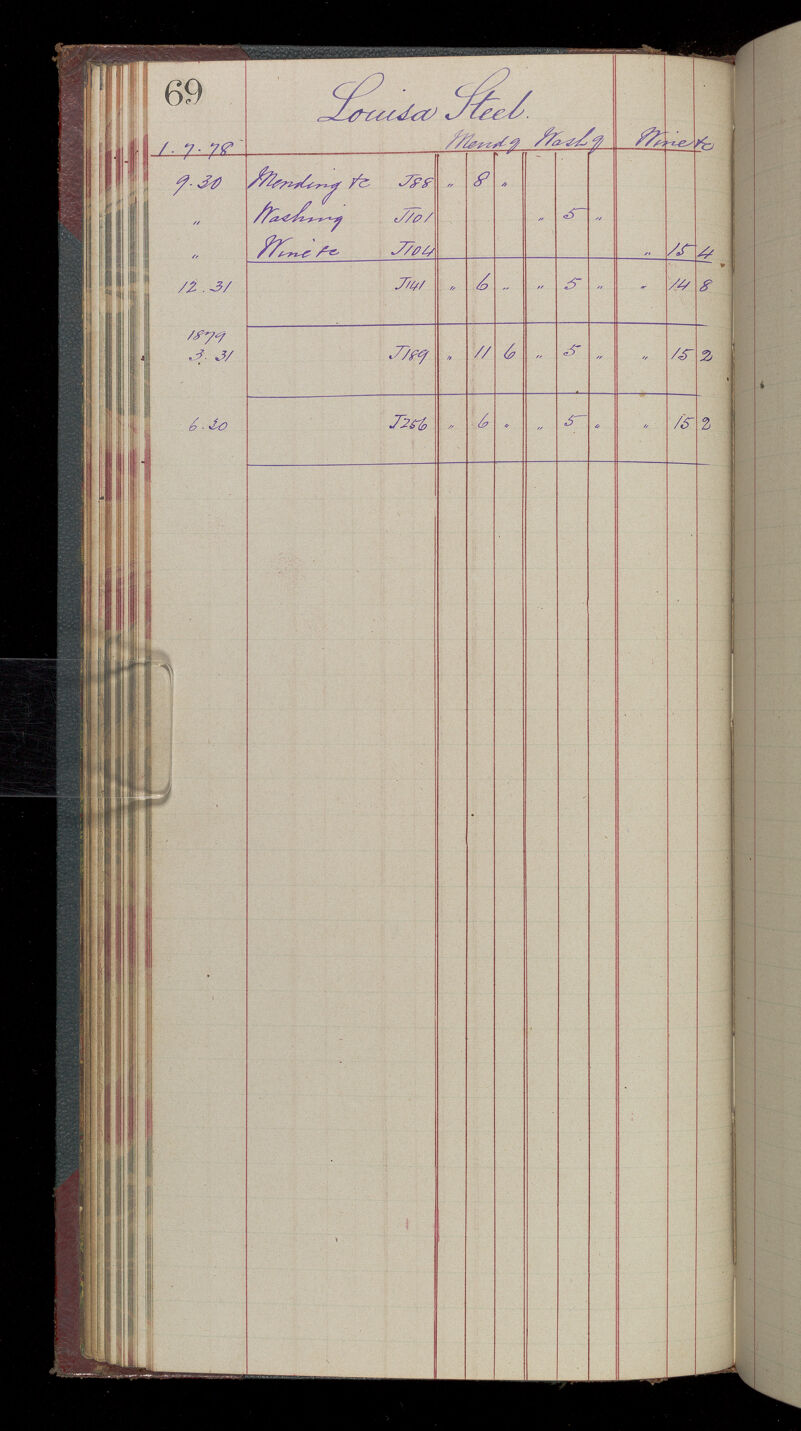 69
Louisa Steel.
1.7.78 Mendg Washg Wine &c
9.30 Mending &c J88 " 8 "
" Washing J101 " 5 "
" Wine &c J104 " 15 4
12.31 J141 " 6 " " 5 " " 14 8
1879
3.31 J189 " 11 6 " 5 " " 15 2
6.30 J256 " 6 " " 5 " " 15 2